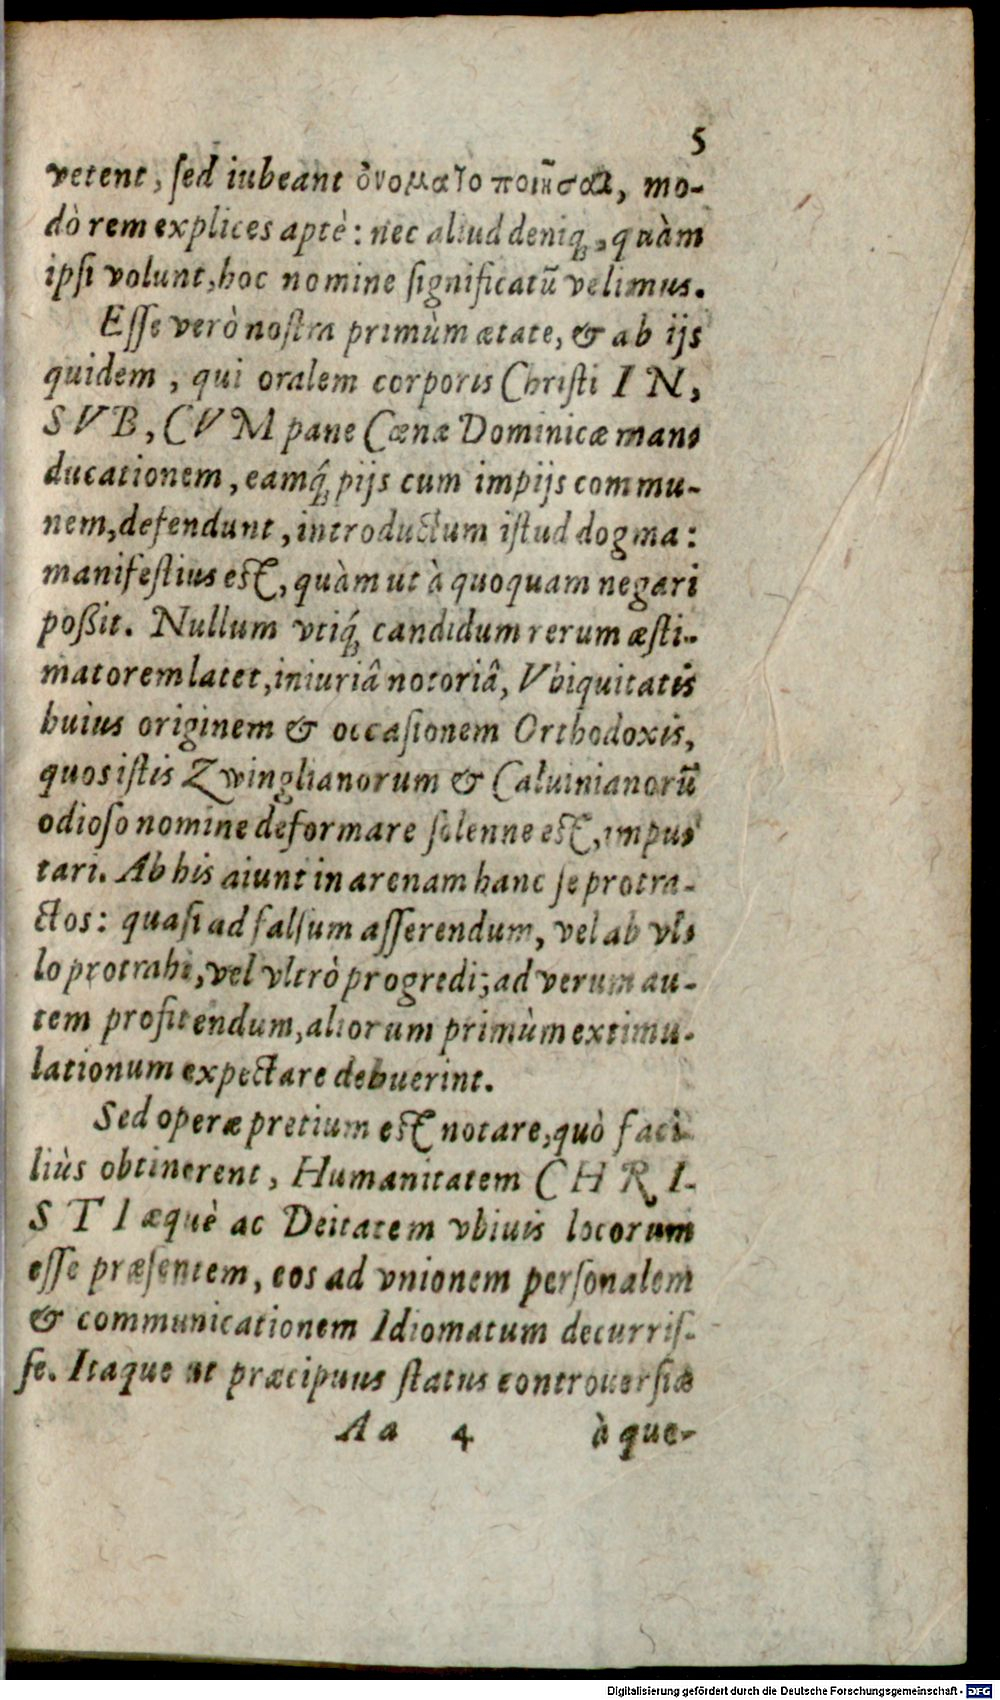 5
vetent, sed iubeant ὀνοματοποιῆσαι, mo-
dò rem explices aptè: nec aliud deniq;, quàm
ipsi volunt, hoc nomine significatũ velimus.
Esse verò nostra primùm ætate, & ab ijs
quidem, qui oralem corporis Christi IN,
SVB, CVM pane Cœnæ Dominicæ man-
ducationem, eamq́; pijs cum impijs commu-
nem, defendunt, introductum istud dogma:
manifestius est, quàm ut à quoquam negari
poßit. Nullum vtiq́; candidum rerum æsti-
matorem latet, iniuriâ notoriâ, Vbiquitatis
huius originem & occasionem Orthodoxis,
quos istis Zwinglianorum & Caluinianorũ
odioso nomine deformare solenne est, impu-
tari. Ab his aiunt in arenam hanc se protra-
ctos: quasi ad falsum asserendum, vel ab vl-
lo protrahi, vel vltrò progredi; ad verum au-
tem profitendum, aliorum primùm extimu-
lationum expectare debuerint.
Sed operæ pretium est notare, quò faci-
liùs obtinerent, Humanitatem CHRI-
STI æquè ac Deitatem vbiuis locorum
esse præsentem, eos ad vnionem personalem
& communicationem Idiomatum decurris-
se. Itaque ut præcipuus status controuersiæ
Aa 4 à que-
Digitalisierung gefördert durch die Deutsche Forschungsgemeinschaft - DFG